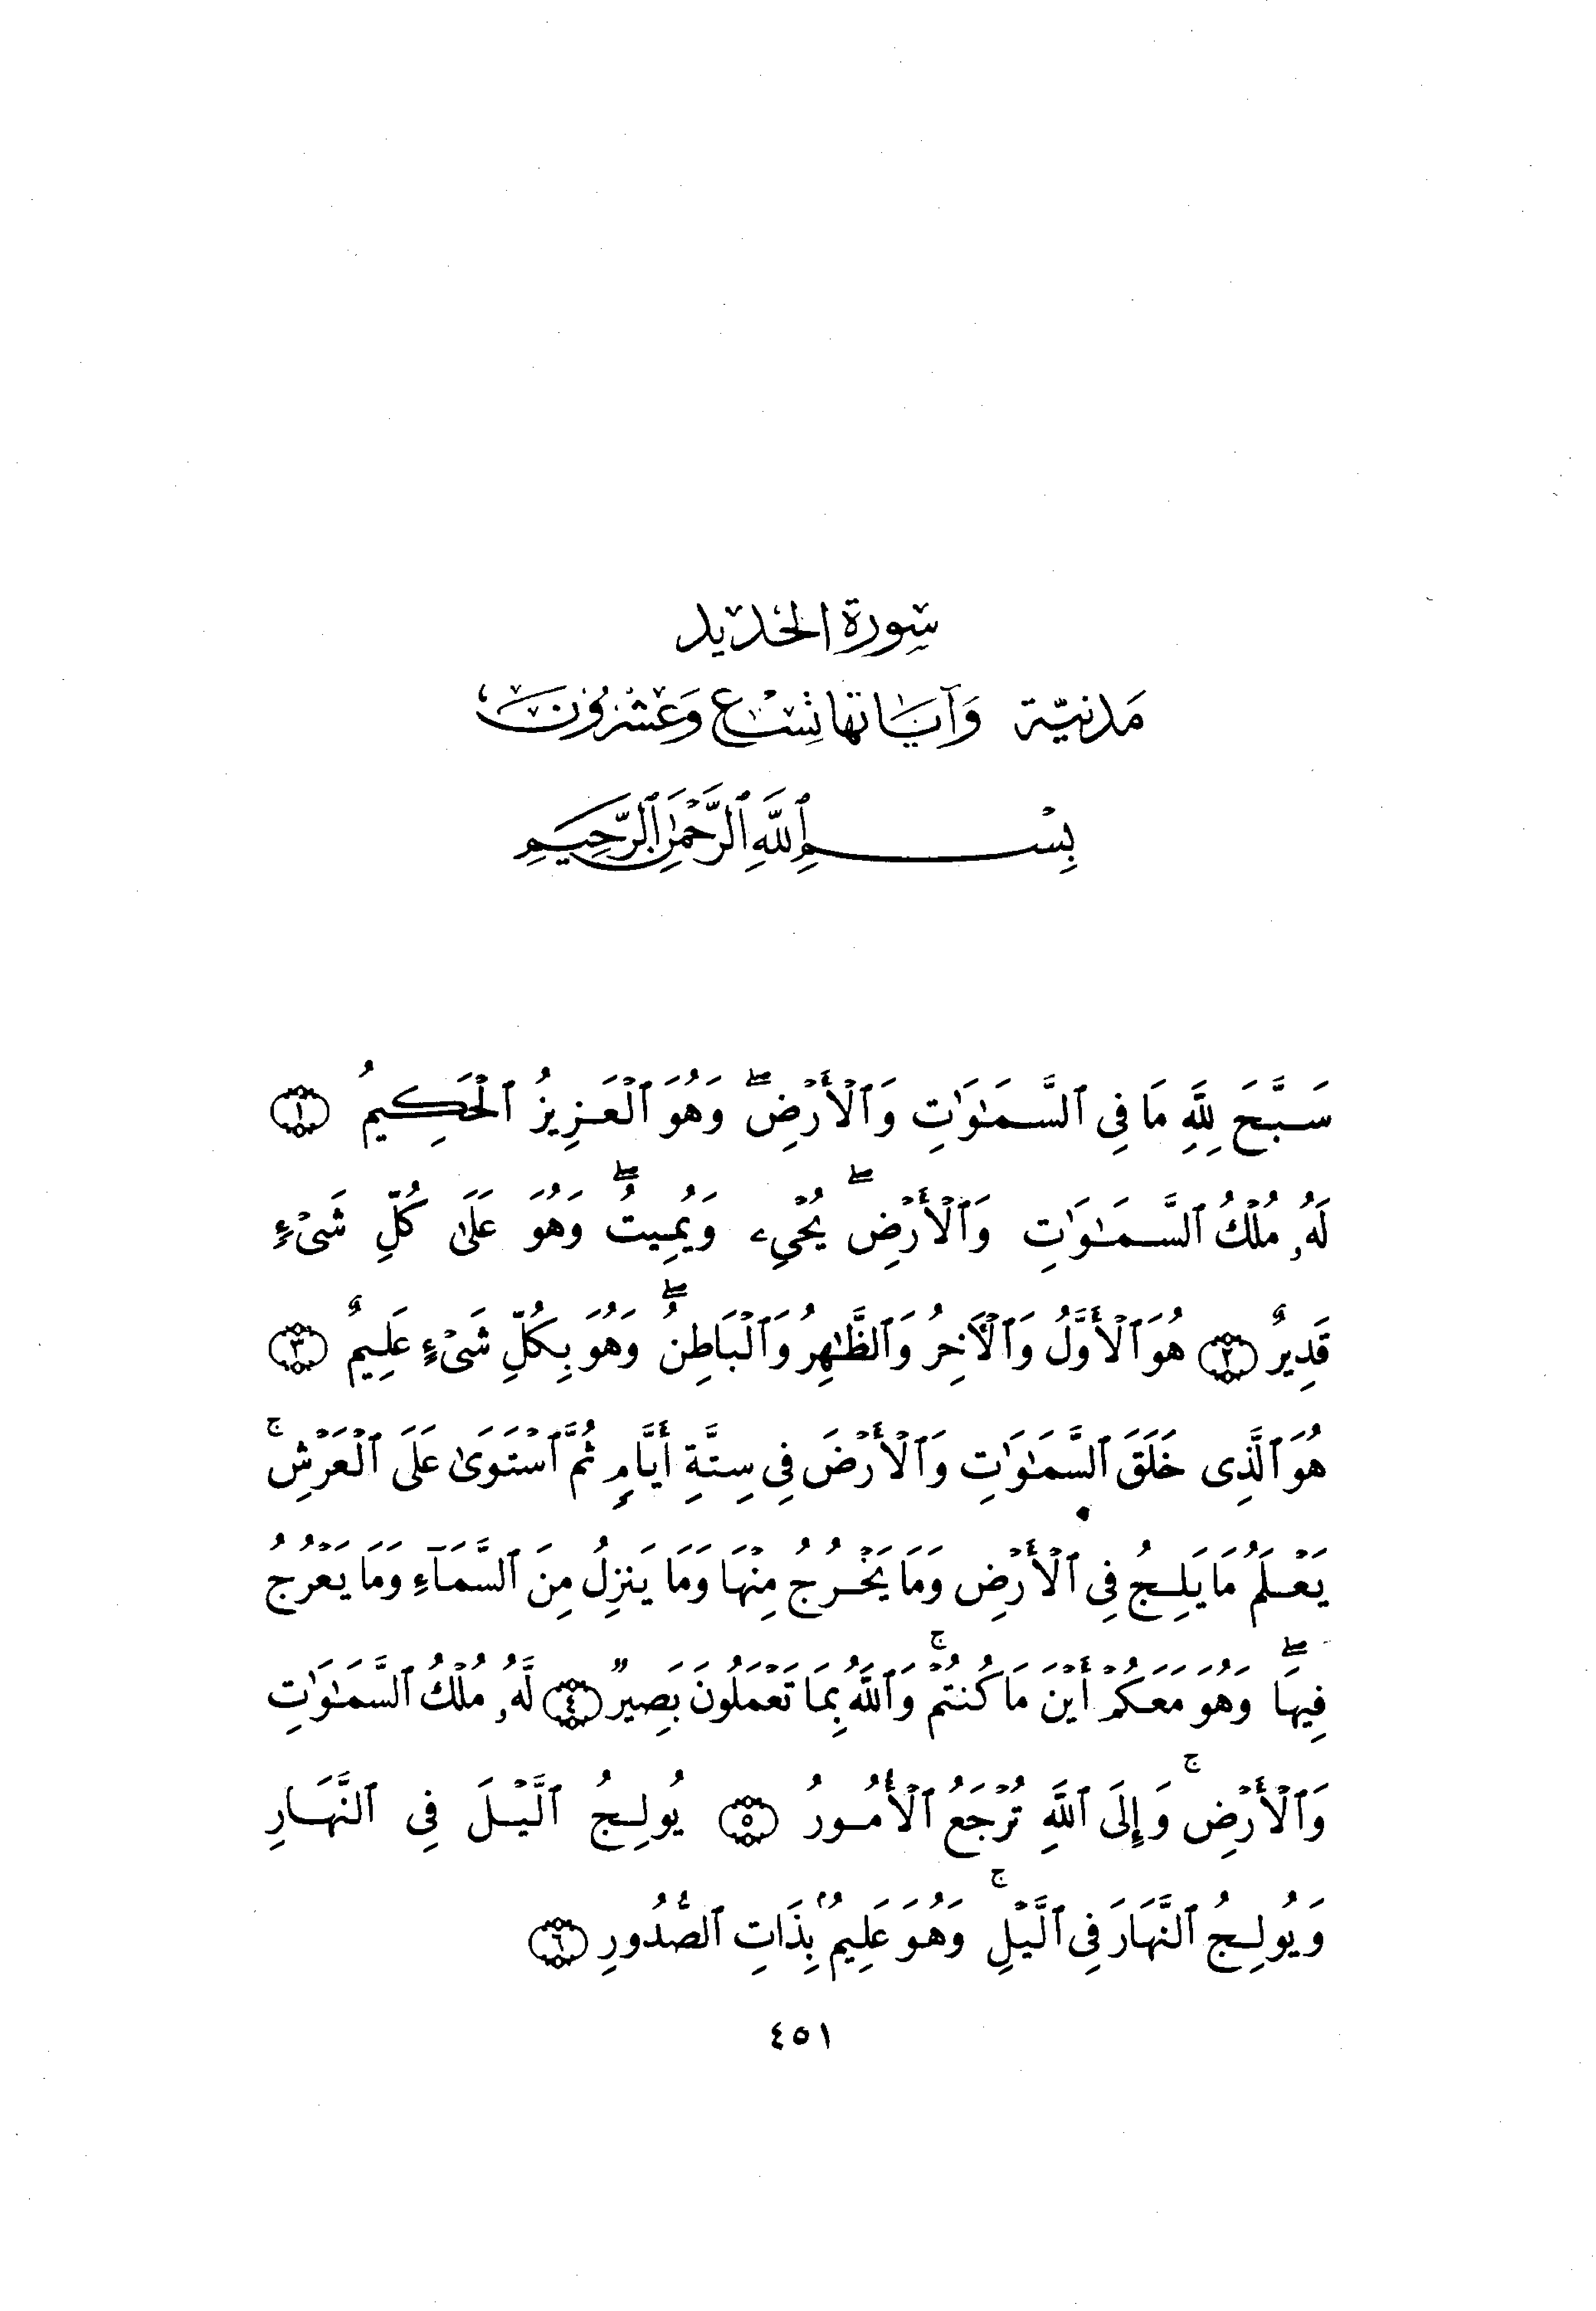 سورة الحديد
مَدنيّة وَآيَاتها تِسْع وَعشرُون
بِسْمِ ٱللَّهِ ٱلرَّحْمَٰنِ ٱلرَّحِيمِ
سَبَّحَ لِلَّهِ مَا فِى ٱلسَّمَٰوَٰتِ وَٱلْأَرْضِۖ وَهُوَ ٱلْعَزِيزُ ٱلْحَكِيمُ ١
لَهُۥ مُلْكُ ٱلسَّمَٰوَٰتِ وَٱلْأَرْضِۖ يُحْىِۦ وَيُمِيتُۖ وَهُوَ عَلَىٰ كُلِّ شَىْءٍ
قَدِيرٌ ٢ هُوَ ٱلْأَوَّلُ وَٱلْأٓخِرُ وَٱلظَّٰهِرُ وَٱلْبَاطِنُۖ وَهُوَ بِكُلِّ شَىْءٍ عَلِيمٌ ٣
هُوَ ٱلَّذِى خَلَقَ ٱلسَّمَٰوَٰتِ وَٱلْأَرْضَ فِى سِتَّةِ أَيَّامٍ ثُمَّ ٱسْتَوَىٰ عَلَى ٱلْعَرْشِۚ
يَعْلَمُ مَا يَلِجُ فِى ٱلْأَرْضِ وَمَا يَخْرُجُ مِنْهَا وَمَا يَنزِلُ مِنَ ٱلسَّمَآءِ وَمَا يَعْرُجُ
فِيهَاۖ وَهُوَ مَعَكُمْ أَيْنَ مَا كُنتُمْۚ وَٱللَّهُ بِمَا تَعْمَلُونَ بَصِيرٌ ٤ لَّهُۥ مُلْكُ ٱلسَّمَٰوَٰتِ
وَٱلْأَرْضِۚ وَإِلَى ٱللَّهِ تُرْجَعُ ٱلْأُمُورُ ٥ يُولِجُ ٱلَّيْلَ فِى ٱلنَّهَارِ
وَيُولِجُ ٱلنَّهَارَ فِى ٱلَّيْلِۚ وَهُوَ عَلِيمٌۢ بِذَاتِ ٱلصُّدُورِ ٦
٤٥١